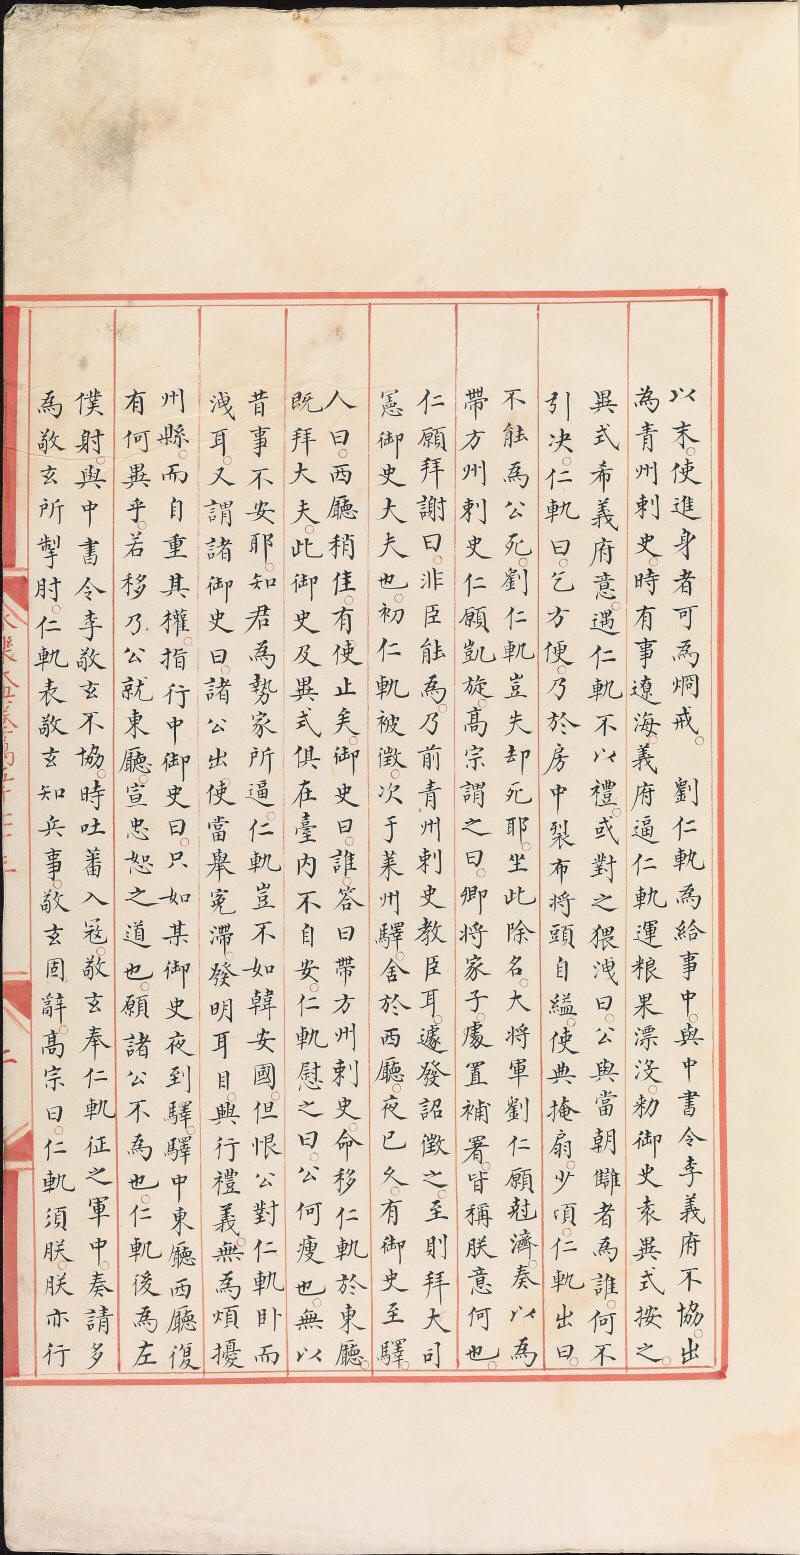 以末。使進身者可為烱戒。　劉仁軌為給事中。與中書令李義府不協。出
為青州刺史。時有事遼海。義府逼仁軌運粮。果漂没。勑御史袁異式按之。
異式希義府意。遇仁軌不以禮。或對之猥洩曰。公與當朝讎者為誰。何不
引决。仁軌曰。乞方便。乃於房中裂布將頭自縊。使典掩扇。少頃。仁軌出曰。
不能為公死。劉仁軌豈失却死耶。坐此除名。大將軍劉仁願尅濟。奏以為
帶方州刺史。仁願凱旋。高宗謂之曰。卿將家子。處置補署。皆稱朕意何也。
仁願拜謝曰。非臣能為。乃前青州刺史教臣耳。遽發詔徵之。至則拜大司
憲御史大夫也。初仁軌被徵。次于萊州驛。舍於西廳。夜已久。有御史至驛。
人曰。西廳稍佳。有使止矣。御史曰。誰。答曰帶方州刺史。命移仁軌於東廳。
既拜大夫。此御史及異式俱在臺内不自安。仁軌慰之曰。公何瘦也。無以
昔事不安耶。知君為勢家所逼。仁軌豈不如韓安國。但恨公對仁軌卧而
洩耳。又謂諸御史曰。諸公出使。當舉寃滯。發明耳目。興行禮義。無為煩擾
州縣。而自重其權。指行中御史曰。只如某御史夜到驛。驛中東廳西廳復
有何異乎。若移乃公就東廳。豈忠恕之道也。願諸公不為也。仁軌後為左
僕射。與中書令李敬玄不協。時吐蕃入冦。敬玄奉仁軌征之軍中。奏請多
為敬玄所掣肘。仁軌表敬玄知兵事。敬玄固辭。高宗曰。仁軌須朕。朕亦行